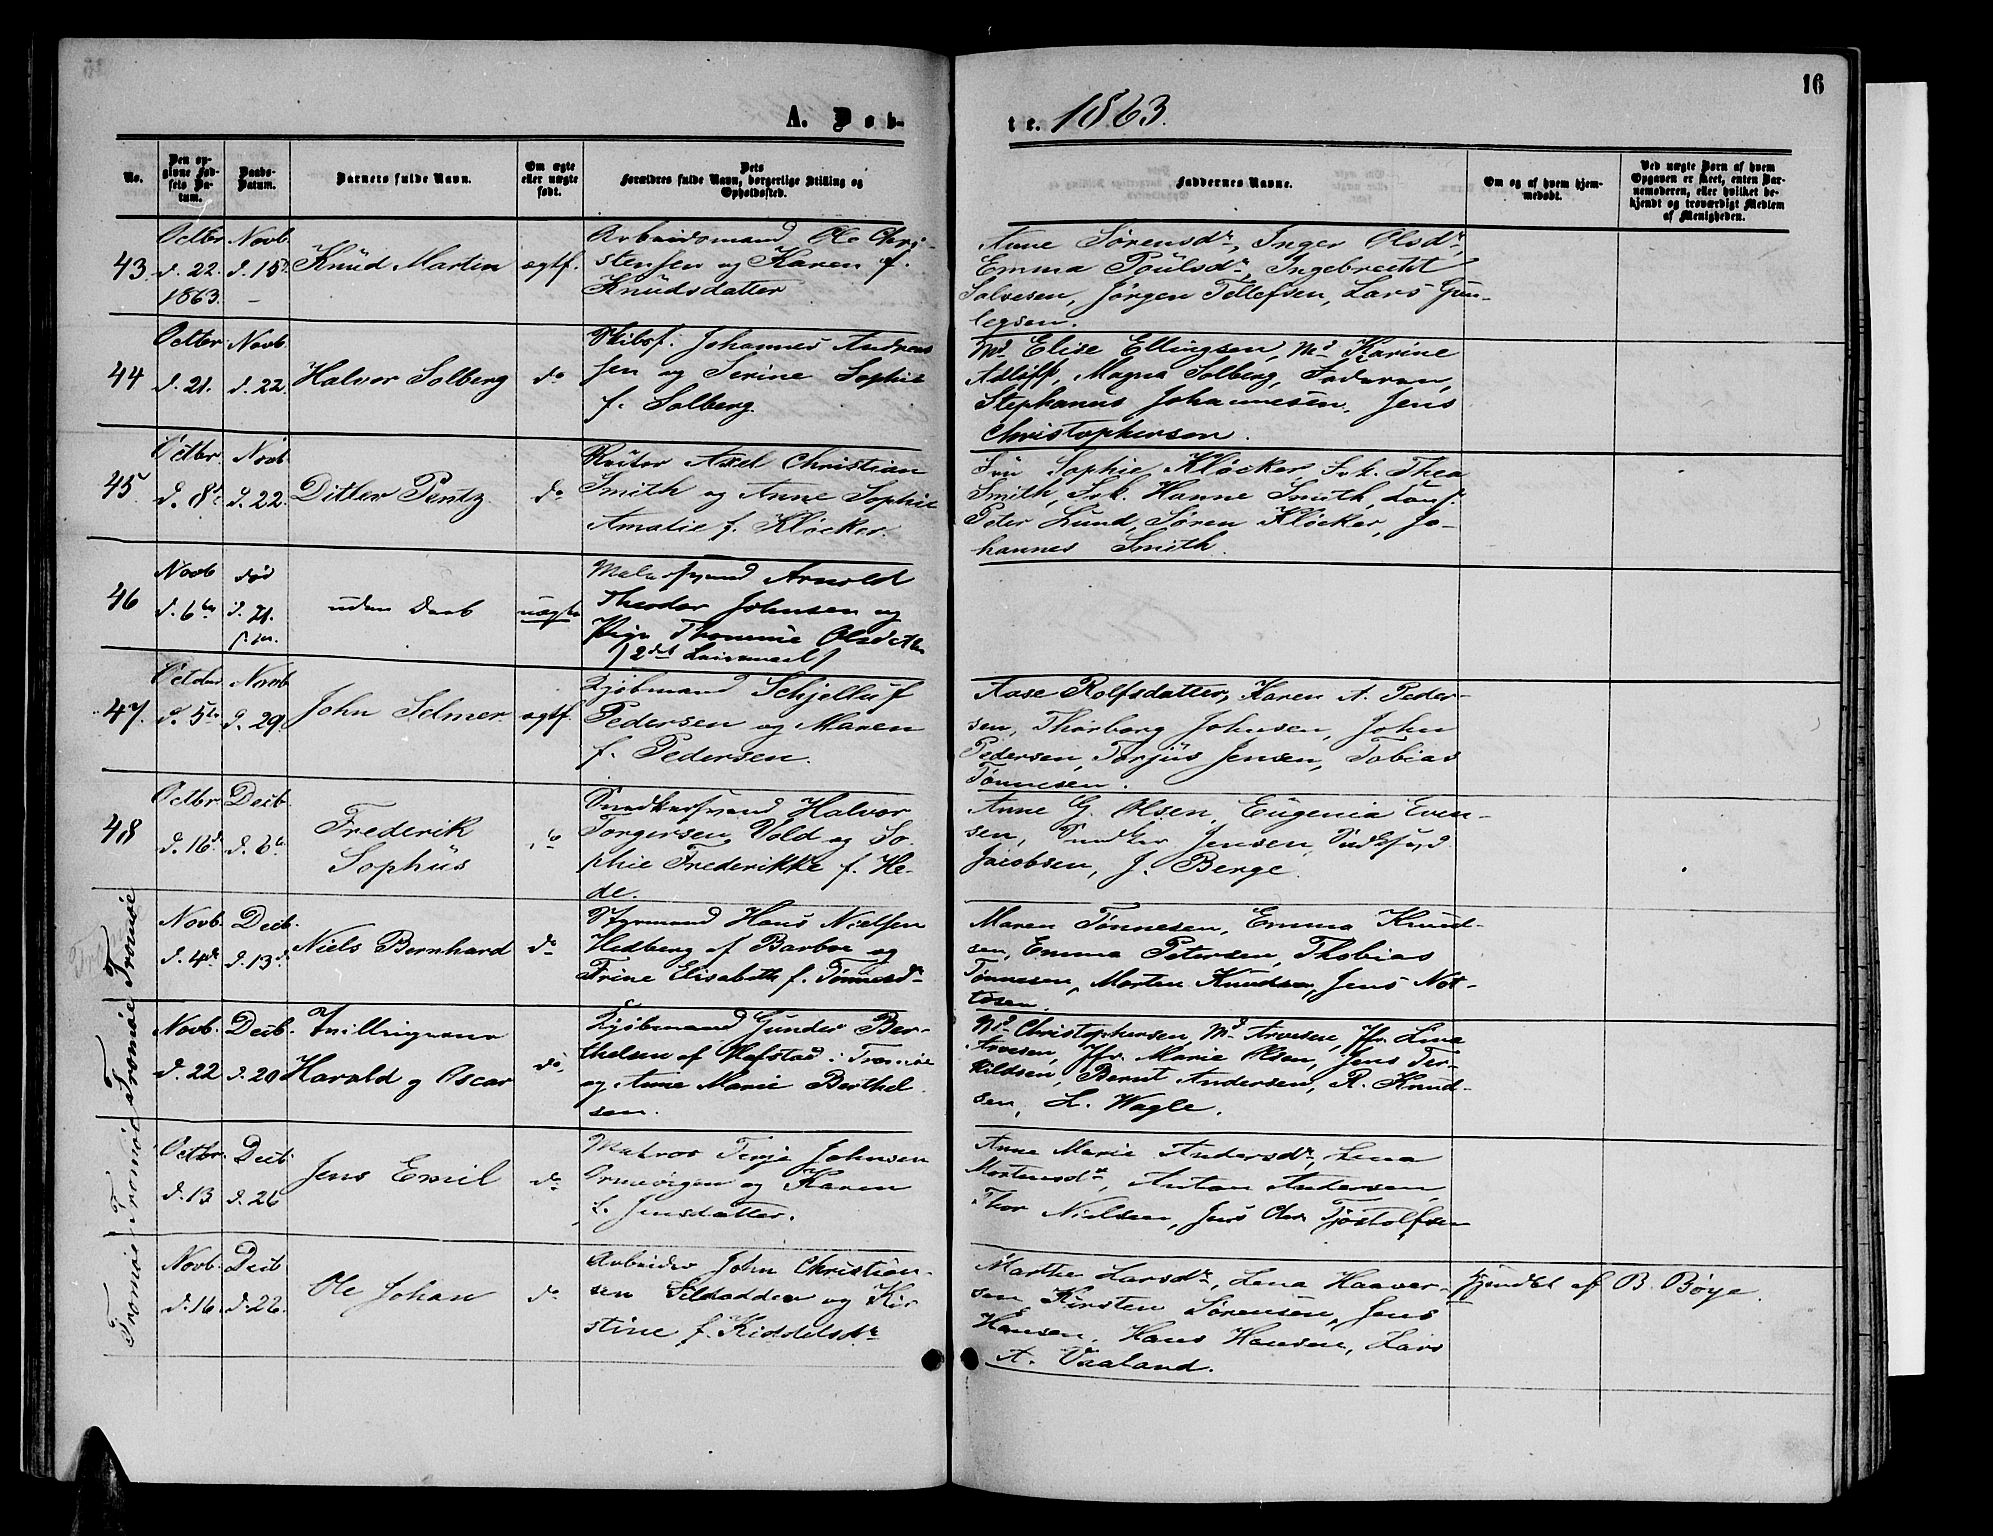 16
A. Døb-
te. 1863.
No.
Den op-
givne Fød-
sels Da-
tum.
Daabs-
Datum.
Barnets fulde Navn.
Om ægte
eller uægte
født.
Dets
Forældres fulde Navn, borgerlige Stilling og
Opholdssted.
Faddernes Navne.
Om og af hvem hjem-
medøbt.
Ved uægte Barn af hvem
Opgaven er skeet, enten Bar-
nemoderen, eller hvilket be-
kjendt og troværdigt Medlem
af Menigheden.
43
Octbr
d. 22.
1863.
Novb
d. 15d
Knud Martin
ægtf.
Arbeidsmand Ole Chri-
stensen og Karen f.
Knudsdatter
Anne Sørensdr, Inger Olsdr,
Emma Poulsdr, Ingebrecht
Salvesen, Jørgen Tellefsen, Lars Gun-
legsen.
44
Octbr
d. 21.
Novb
d. 22.
Halvor Solberg
do
Skibsf. Johannes Andreas
sen og Serine Sophie
f. Solberg.
Md Elise Ellingsen, Md Karine
Adluff, Magna Solberg, Faderen,
Stephanus Johannesen, Jens
Christophersen.
45
Octbr
d. 8d
Novb
d. 22.
Ditlev Pentz.
do
Axel Christian
Smith og Anne Sophie
Amalie f. Kløcker.
Fru Sophie Kløcker Frk. Thea
Smith, Frk. Hanne Smith,
Peter Lund, Søren Kløcker, Jo-
hannes Smith.
46
Novb
d. 6te
død
d. 21.
uden Daab
uægte
Malersvend Arnold
Theodor Johnsen og
Pige Thomine Olsdatter
(2det Leiermaal)
47.
Octbr
d. 5te
Novb
d. 29.
John Selmer
ægtf.
Kjøbmand Schjelluf
Pedersen og Maren
f. Pedersen.
Aase Rolfsdatter, Karen A. Peder-
sen, Thorborg Johnsen, John
Pedersen, Torjus Jensen, Tobias
Tønnesen.
48
Octbr
d. 16d
Decb
d. 6te
Frederik
Sophus
do
Snedkersvend Halvor
Torgersen Vold og So-
phie Frederikke f. He-
de.
Anne G. Olsen, Eugenia Even-
sen, Snedker Jensen,
Jacobsen, J. Berge.
Tromøe
Novb.
d. 4de
Decb
d. 13d
Niels Bernhard
do
Styrmand Hans Nielsen
Hedberg af Barboe og
Trine Elisabeth f. Tønnesdr
Maren Tønnesen, Emma Knud-
sen, Emma Petersen, Thobias
Tønnesen, Morten Knudsen, Jens Not-
tesen.
Tromøe
Novb.
d. 22
Decb.
d. 20
Tvillingerne
Harald og Oscar
do
Kjøbmand Gunder Ber-
thelsen af Hofstad i Tromøe
og Anne Marie Berthel-
sen.
Md Christophersen, Md Arvesen, Jfr. Lina
Arvesen, Jfr. Marie Olsen, Jens Ter-
kildsen, Bernt Andersen, R. Knud-
sen, L. Wagle.
Tromøe
Octbr.
d. 13
Decb
d. 26
Jens Emil
do
Matros Terje Johnsen
og Karen
L. Jensdatter.
Anne Marie Andersdr, Lena
Mortensdr, Anton Andersen,
Thor Nielsen, Jens Chr. Tjøstolfsen
Tromøe
Novb.
d. 16.
Decb
d. 26.
Ole Johan
do
Arbeider John Christian-
sen og Kir-
stine f. Kiddelsdr
Marthe Larsdr, Lena Haaver-
sen Kirsten Sørensen, Jens
Hansen, Hans Hansen, Lars
A. Vaaland.
hjemdøbt af B. Bøye.